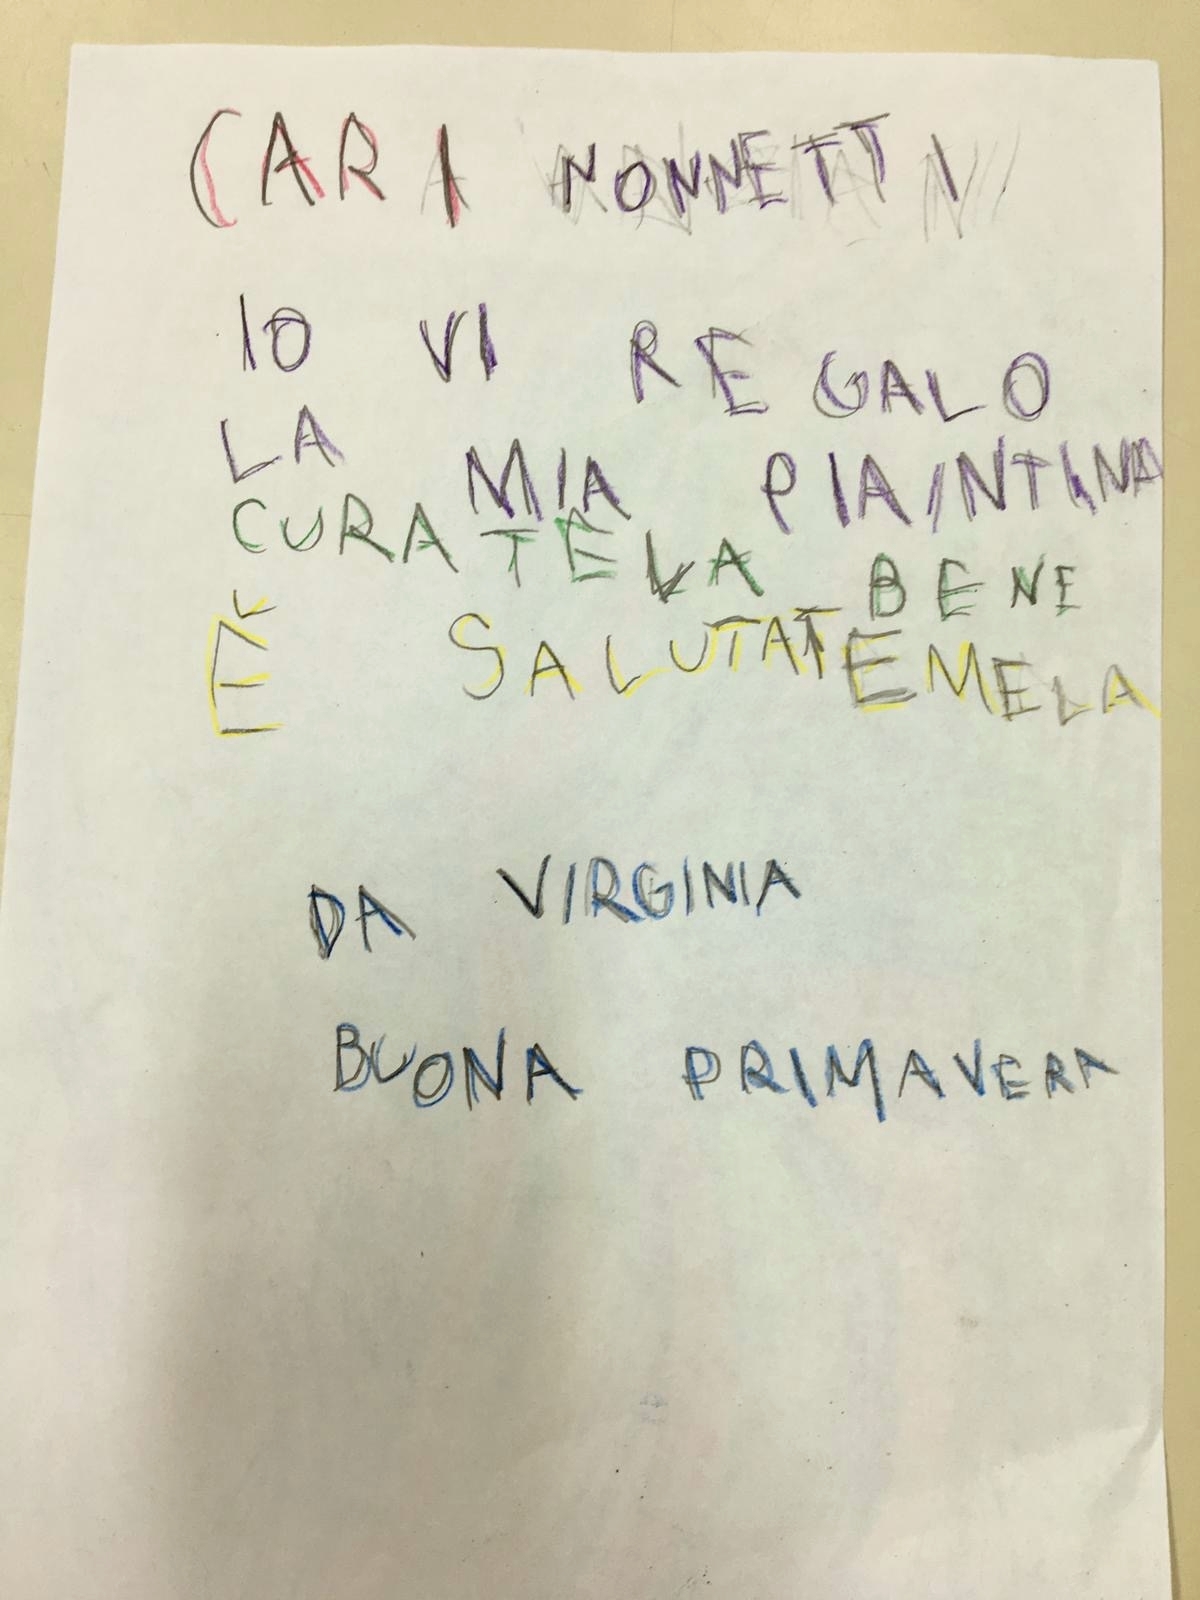 CARI NONNETTI
IO VI REGALO
LA MIA PIAINTINA
CURATELA BENE
È SALUTATEMELA
DA VIRGINIA
BUONA PRIMAVERA